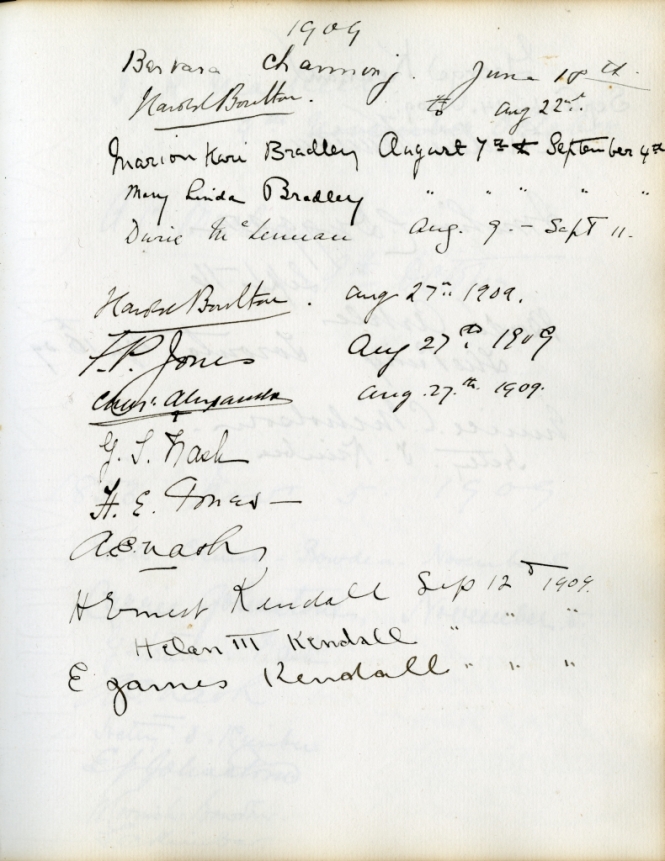 1909
Barbara Channing. June 18th
Harold Boulton. to Aug 22nd.
Marion Hari Bradley August 7th to September 4th
Mary Linda Bradley " " " "
Durie McLennan Aug. 9. - Sept 11.
Harold Boulton. Aug 27th 1909.
F.P. Jones Aug 27th 1909
Chas. Alexander Aug. 27.th 1909.
G. S. Nash
H. E. Jones
A.E. Nash
H Ernest Kendall Sep 12th 1909.
Helen M Kendall " " "
E James Kendall " " "